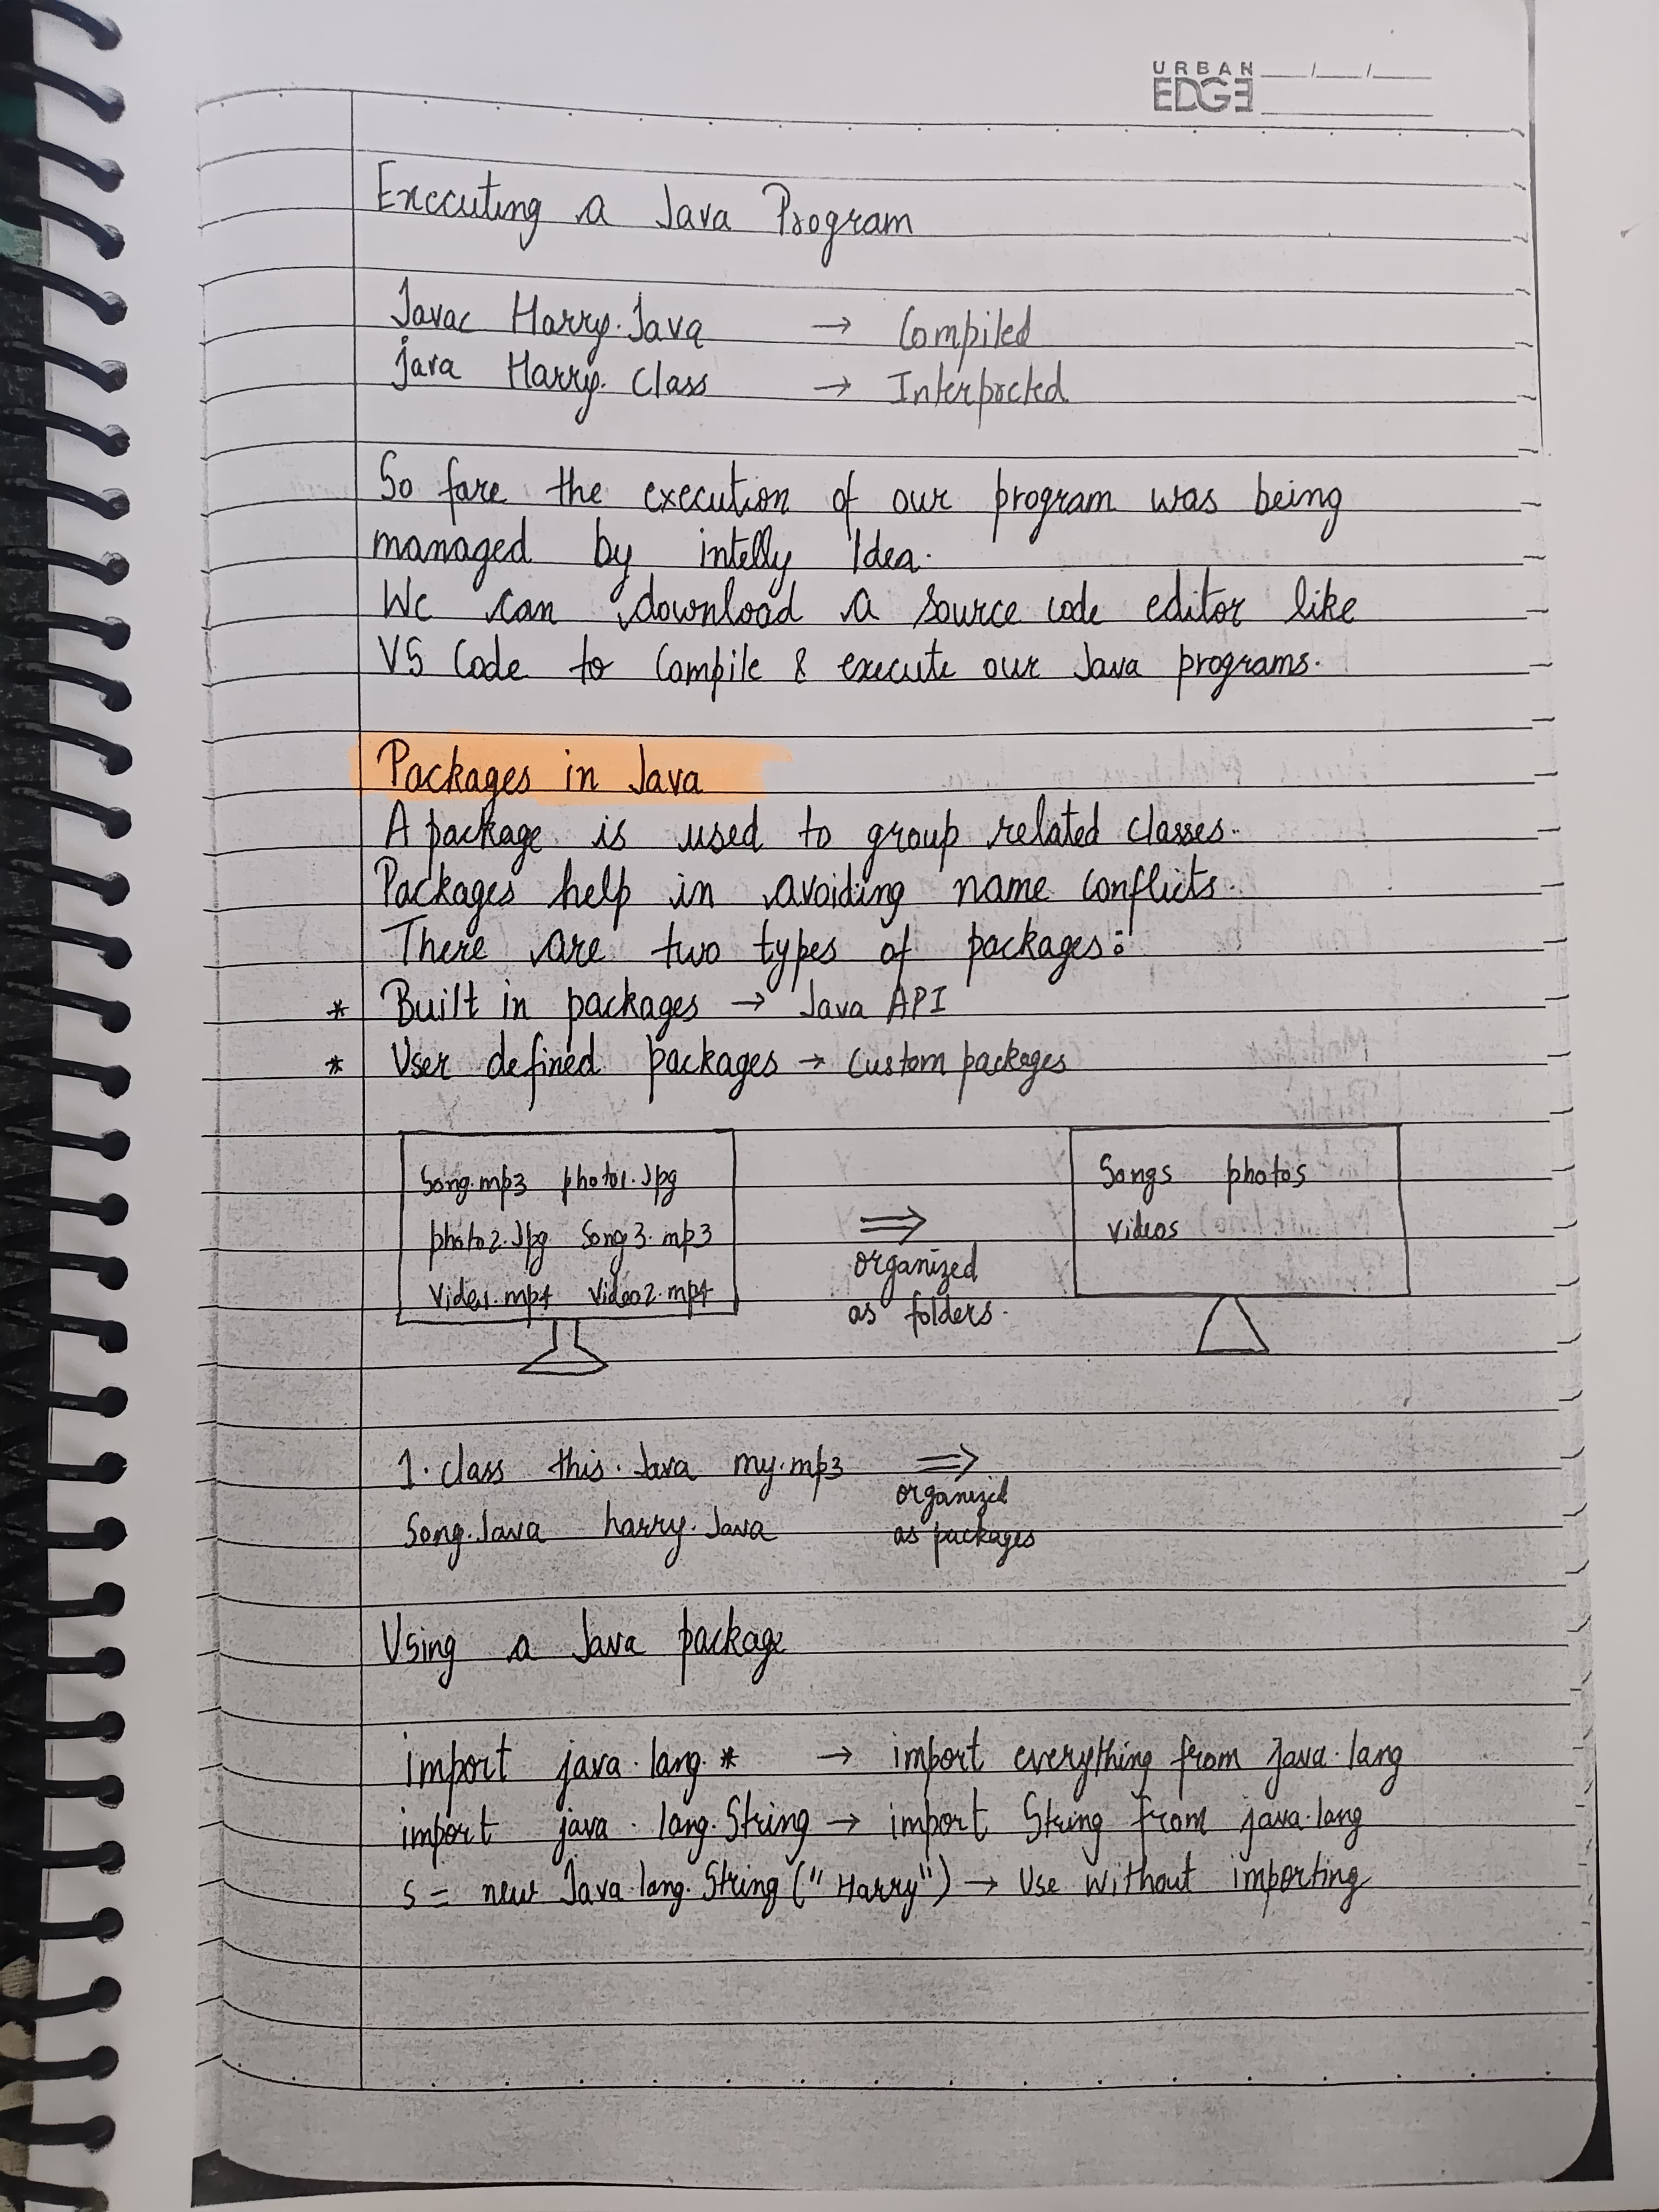 URBAN
EDGE
Executing a Java Program
Javac Harry.Java → Compiled
java Harry.Class → Interpreted
So fare the execution of our program was being
managed by intelly Idea.
We can download a source code editor like
VS Code to Compile & execute our Java programs.
Packages in Java
A package is used to group related classes.
Packages help in avoiding name conflicts.
There are two types of packages:
* Built in packages → Java API
* User defined packages → Custom packages
Song.mp3 photo1.Jpg
photo2.Jpg Song3.mp3
Video1.mp4 Video2.mp4
⇒
organized
as folders.
Songs photos
videos
1.class this.Java my.mp3 ⇒
organized
Song.Java harry.Java as packages
Using a Java package
import java.lang.* → import everything from java.lang
import java.lang.String → import String from java.lang
s = new Java.lang.String("Harry") → Use without importing